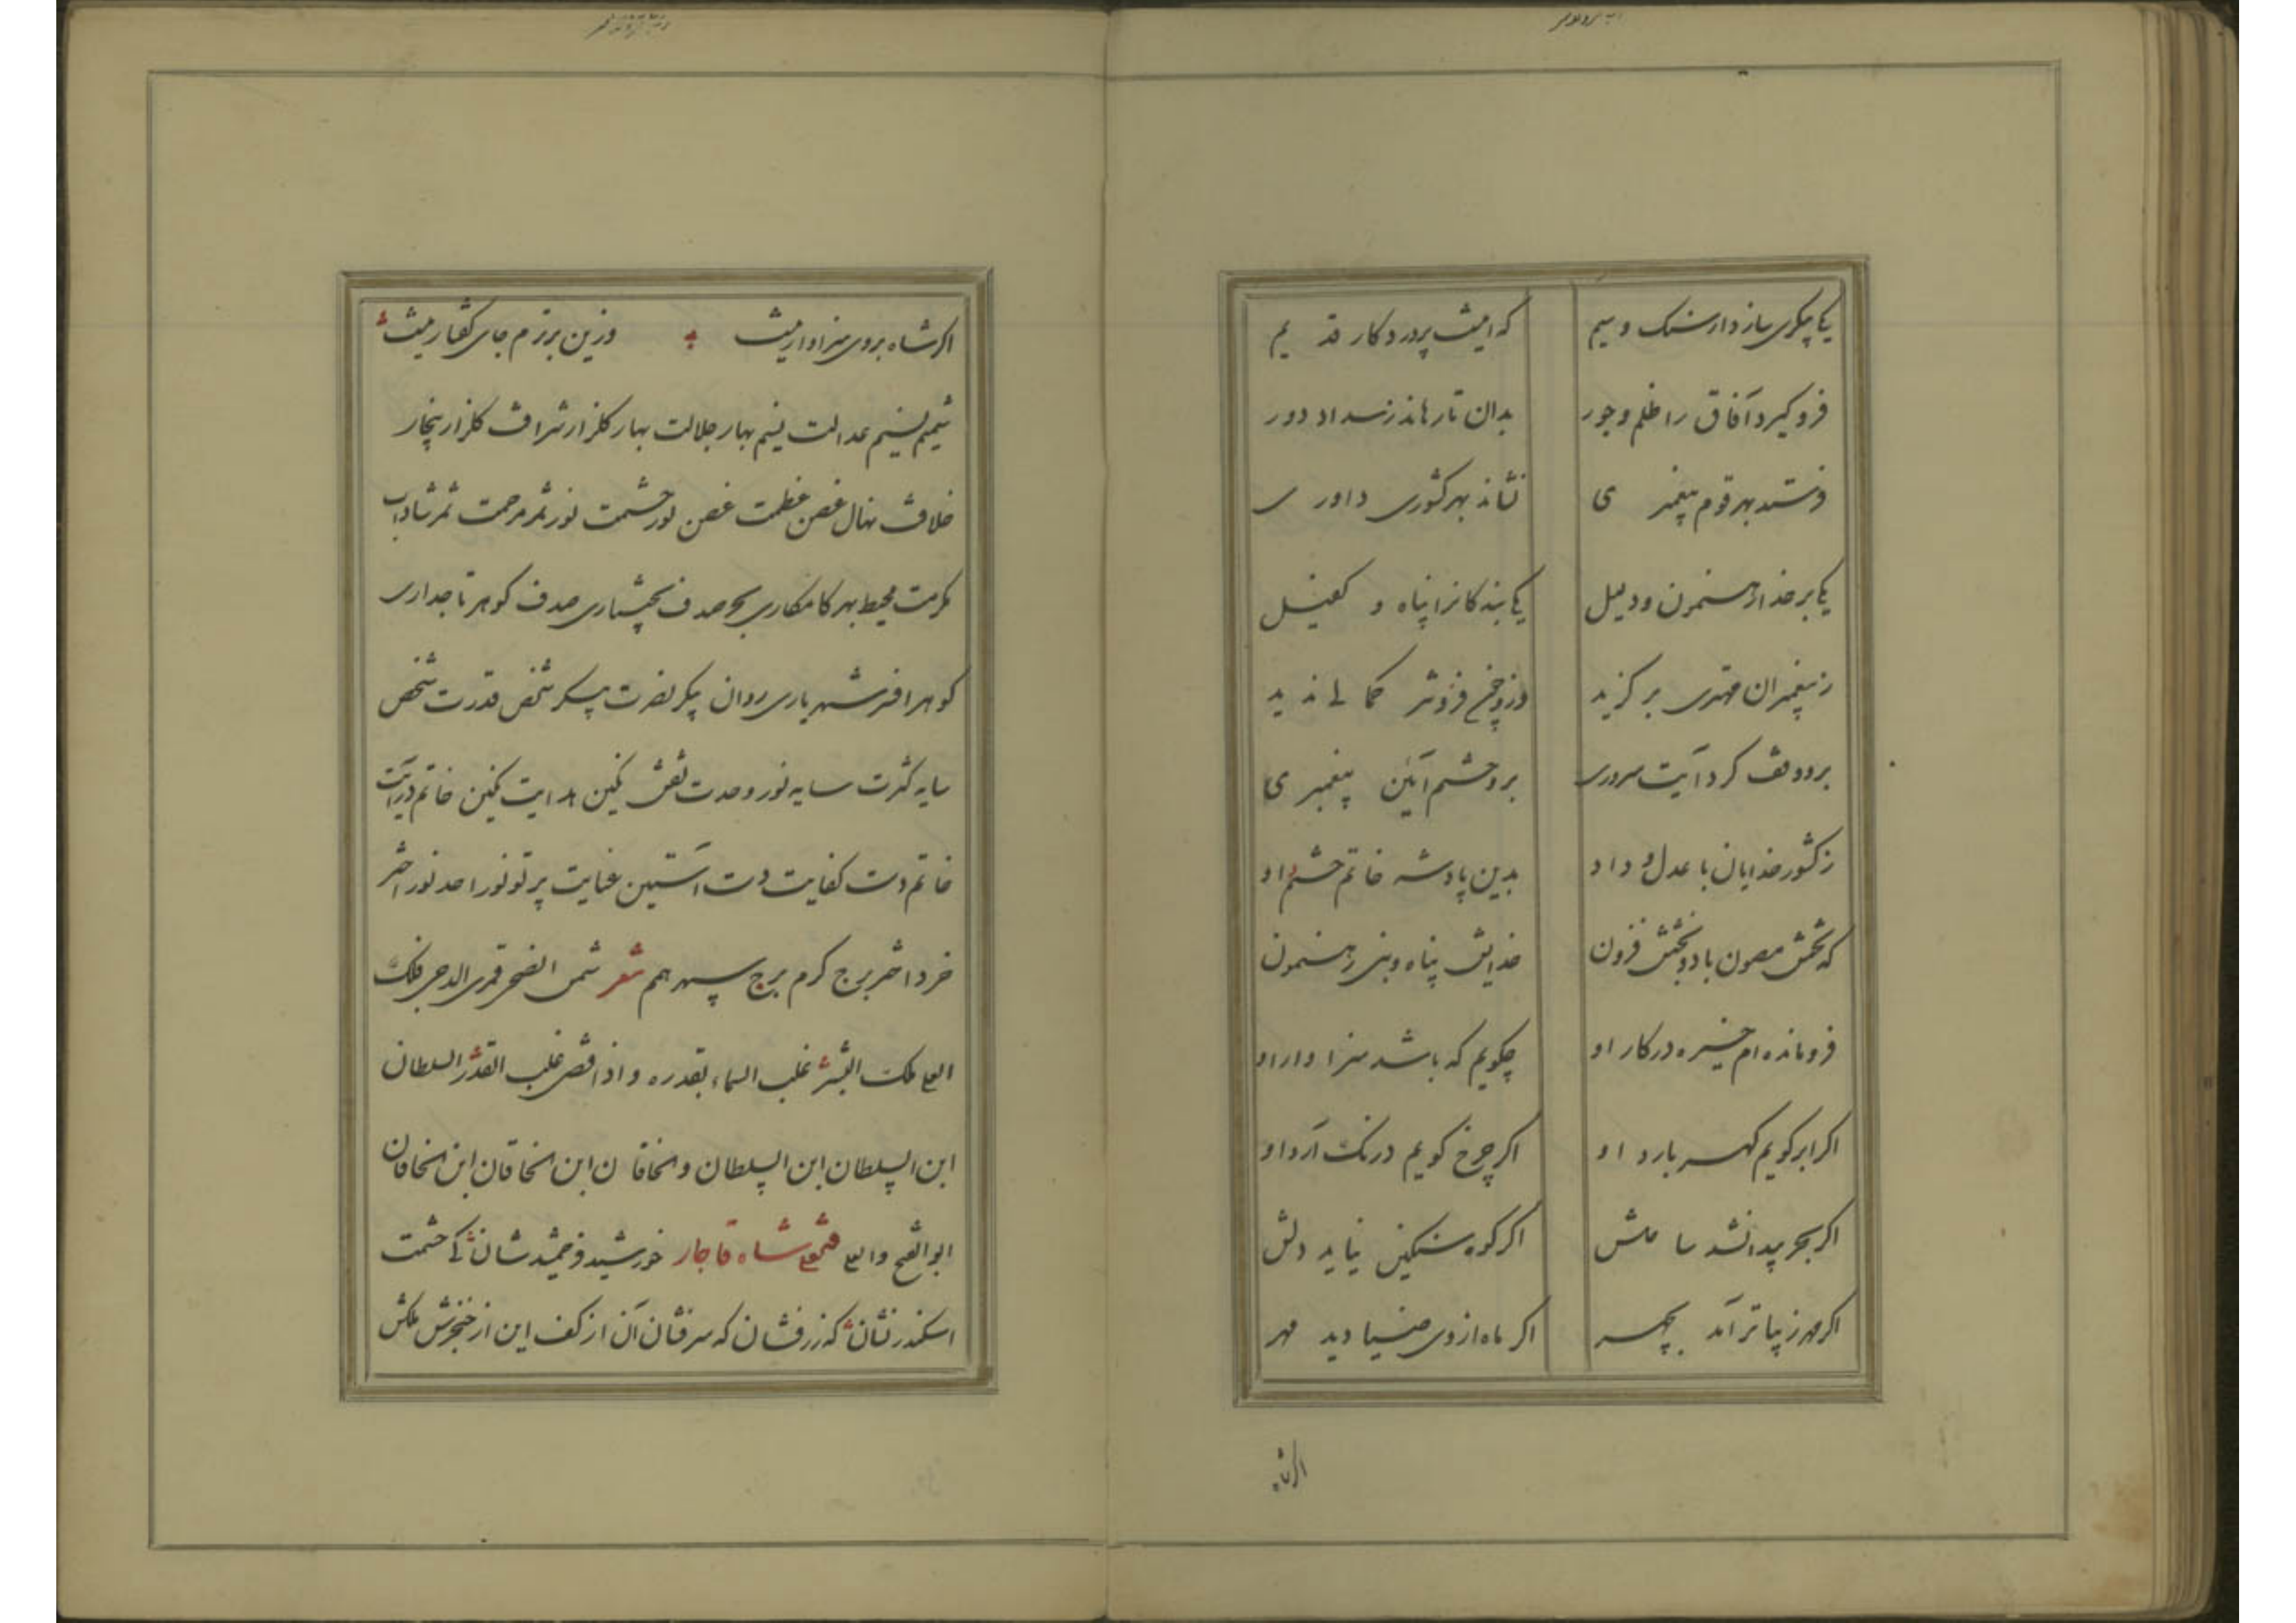 یکی پیکری سازد از سنک و سیم که اینست پروردکار قدیم
فرو کیرد آفاق را ظلم و جور بدان تا رهاند ز بیداد دور
فرستد بهر قوم پیغمبری نشاند بهر کشوری داوری
یکی بر خدا رهنمون و دلیل یکی بندکانرا پناه و کفیل
ز پیغمبران مهتری بر کزید کمالی ندید
برو وقف کرد آیت سروری برو ختم آیین پیغمبری
ز کشور خدایان با عدل و داد بدین پادشه خاتم حشم داد
که تختش مصون باد و بختش فزون خدایش پناه و نبی رهنمون
فرو مانده ام خیره در کار او چکویم که باشد سزاوار او
اکر ابر کویم کهر بارد او اکر چرخ کویم درنک آرد او
اکر بحر پیدا نشد ساحلش اکر کوه سنکین نیاید دلش
اکر مهر زیباتر آمد بچهر اکر ماه از وی ضیا دید مهر
اکر شاه
اکر شاه بروی سزاوار نیست وزین برترم جای کفتار نیست
شمیم نسیم عدالت نسیم بهار جلالت بهار کلزار شرافت کلزار
خلافت نهال غصن عظمت غصن نور حشمت نور ثمر مرحمت ثمر شاداب
مکرمت محیط بهر کامکاری بحر صدف صدف کوهر تاجداری
کوهر افسر شهریاری روان پیکر نصرت پیکر شخص قدرت شخص
سایه کثرت سایه نور وحدت نقش نکین هدایت نکین خاتم درایت
خاتم دست کفایت دست آستین عنایت پرتو نور احد نور اختر
خرد اختر برج کرم برج سپهر همم شعر شمس الضحی قمر الدجی فلک
العلی ملک البشر غلب السماء بقدره و اذا قضی غلب القدر السلطان
ابن السلطان ابن السلطان و الخاقان ابن الخاقان ابن الخاقان
ابو الفتح و العلی فتحعلی شاه قاجار خورشید فر جمشید شان کی حشمت
اسکندر نشان که زرفشان که سرفشان آن از کف این از خنجرش ملکش